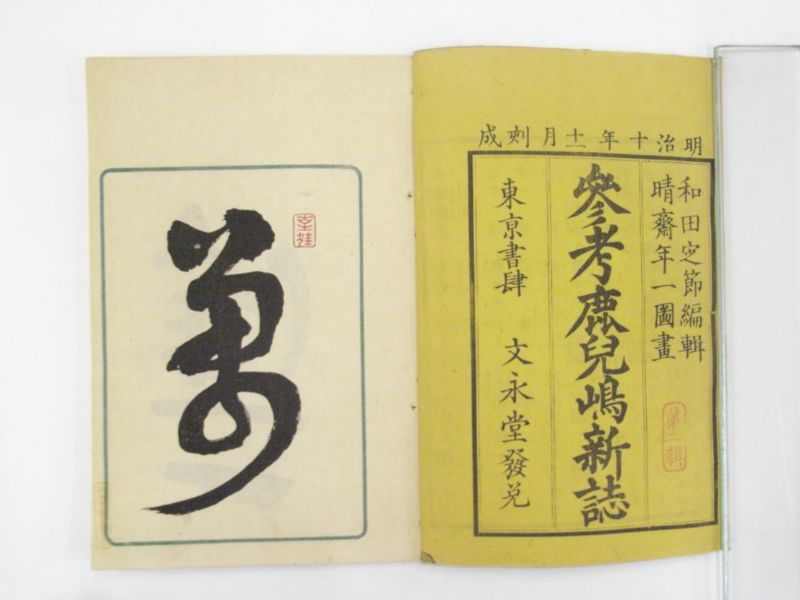 明治十年十一月刻成
和田㝎節編輯
晴齋年一圖畫
第二輯
參考鹿兒嶋新誌
東亰書肆 文永堂發兌
萬